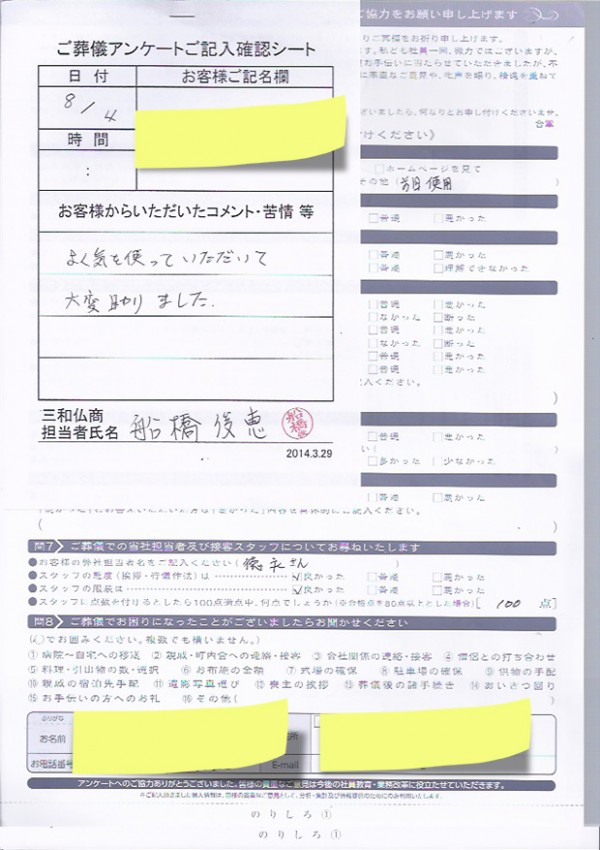 ご協力をお願い申し上げます
ご葬儀アンケートご記入確認シート
日 付
お客様ご記名欄
8/4
時 間
:
お客様からいただいたコメント・苦情 等
よく気を使っていただいて
大変助かりました.
三和仏商
担当者氏名 船橋俊恵
2014.3.29
合掌
□ホームページを見て
その他(前回使用)
□普通 □悪かった
□普通 □悪かった
□普通 □理解できなかった
□普通 □悪かった
□なかった □断った
□普通 □悪かった
□なかった □断った
□普通 □悪かった
□普通 □悪かった
□普通 □悪かった
□多かった □少なかった
□普通 □悪かった
問7 ご葬儀での当社担当者及び接客スタッフについてお尋ねいたします
●お客様の弊社担当者名をご記入ください(徳永さん)
●スタッフの態度(挨拶・行儀作法)は ✓良かった □普通 □悪かった
●スタッフの服装は ✓良かった □普通 □悪かった
●スタッフに点数を付けるとしたら100点満点中、何点でしょうか(※合格点を80点以上とした場合)[100 点]
問8 ご葬儀でお困りになったことがございましたらお聞かせください
(○でお囲みください。複数でも構いません。)
①病院〜自宅への移送 ②親戚・町内会への連絡・接客 ③会社関係の連絡・接客 ④僧侶との打ち合わせ
⑤料理・引出物の数・選択 ⑥お布施の金額 ⑦式場の確保 ⑧駐車場の確保 ⑨供物の手配
⑩親戚の宿泊先手配 ⑪遺影写真選び ⑫喪主の挨拶 ⑬葬儀後の諸手続き ⑭あいさつ回り
⑮お手伝いの方へのお礼 ⑯その他(
ふりがな
お名前
お電話番号
E-mail
アンケートへのご協力ありがとうございました。皆様の貴重なご意見は今後の社員教育・業務改革に役立たせていただきます。
のりしろ①
のりしろ①